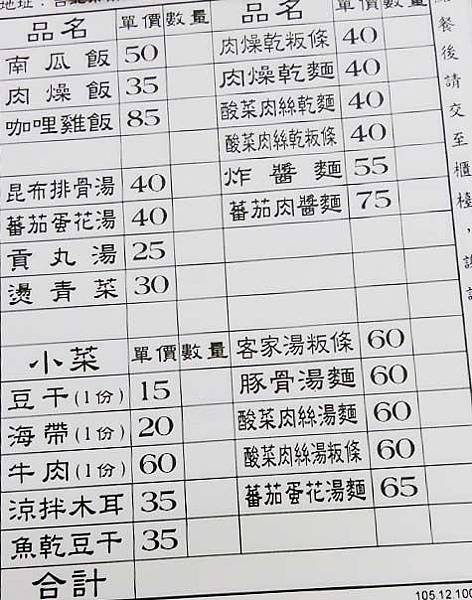 地址：台北
品名 單價 數量 品名 單價 數量
南瓜飯 50 肉燥乾粄條 40
肉燥飯 35 肉燥乾麵 40
咖哩雞飯 85 酸菜肉絲乾麵 40
酸菜肉絲乾粄條 40
昆布排骨湯 40 炸醬麵 55
蕃茄蛋花湯 40 蕃茄肉醬麵 75
貢丸湯 25
燙青菜 30
小菜 單價 數量 客家湯粄條 60
豆干(1份) 15 豚骨湯麵 60
海帶(1份) 20 酸菜肉絲湯麵 60
牛肉(1份) 60 酸菜肉絲湯粄條 60
涼拌木耳 35 蕃茄蛋花湯麵 65
魚乾豆干 35
合計
餐後請交至櫃檯，謝
105.12.100